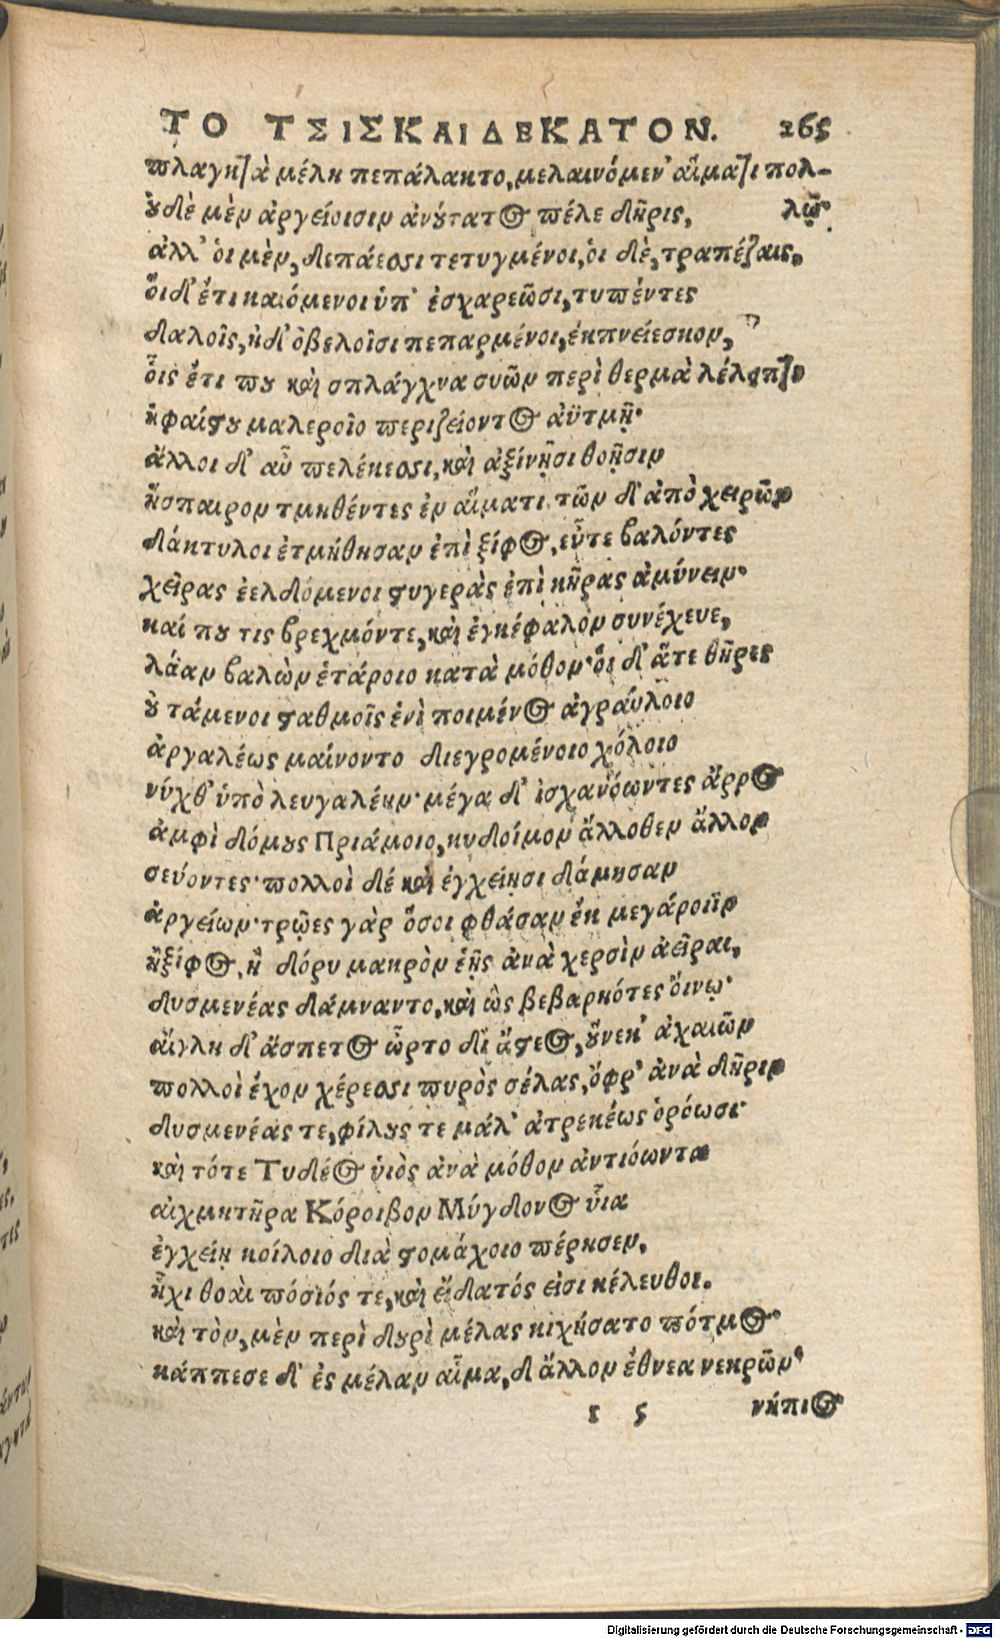 ΤΟ ΤΣΙΣΚΑΙΔΕΚΑΤΟΝ. 265
πλαγκτὰ μέλη πεπάλακτο, μελαινόμεν' αἵματι πολ-
οὐδὲ μὲν ἀργείοισιν ἀνούτατος πέλε δῆρις, λῷ.
ἀλλ' οἱ μὲν, δεπάεσσι τετυγμένοι, οἱ δὲ, τραπέζαις,
οἵ δ' ἔτι καιόμενοι ὑπ' ἐσχαρεῶσι, τυπέντες
δαλοῖς, ἠδ' ὀβελοῖσι πεπαρμένοι, ἐκπνείεσκον,
οἷς ἔτι που καὶ σπλάγχνα συῶν περὶ θερμὰ λέλειπτο
ἡφαίστου μαλεροῖο περιζείοντος ἀϋτμῇ·
ἄλλοι δ' αὖ πελέκεσσι, καὶ ἀξίνῃσι θοῇσιν
ἤσπαιρον τμηθέντες ἐν αἵματι. τῶν δ' ἀπὸ χειρῶν
δάκτυλοι ἐτμήθησαν ἐπὶ ξίφος, εὖτε βαλόντες
χεῖρας ἐελδόμενοι στυγερὰς ἐπὶ κῆρας ἀμύνειν·
καί που τις βρεχμόντε, καὶ ἐγκέφαλον συνέχευε,
λάαν βαλὼν ἑτάροιο κατὰ μόθον· οἱ δ' ἅτε θῆρες
οὐτάμενοι σταθμοῖς ἐνὶ ποιμένος ἀγραύλοιο
ἀργαλέως μαίνοντο διεγρομένοιο χόλοιο
νύχθ' ὑπὸ λευγαλέην· μέγα δ' ἰσχανόωντες ἄρρος
ἀμφὶ δόμους Πριάμοιο, κυδοίμον ἄλλοθεν ἄλλον
σεύοντες· πολλοὶ δέ καὶ ἐγχείῃσι δάμησαν
ἀργείων· τρῶες γὰρ ὅσοι φθάσαν ἐκ μεγάροιϊν
ἢ ξίφος, ἢ δόρυ μακρὸν ἑῆς ἀνὰ χερσὶν ἀεῖραι,
δυσμενέας δάμναντο, καὶ ὣς βεβαρηότες οἴνῳ·
αἴγλη δ' ἄσπετος ὦρτο δἰ ἄστεος, οὕνεκ' ἀχαιῶν
πολλοὶ ἔχον χέρεσσι πυρὸς σέλας, ὄφρ' ἀνὰ δῆριν
δυσμενέας τε, φίλους τε μάλ' ἀτρεκέως ὁρόωσι·
καὶ τότε Τυδέος υἱὸς ἀνὰ μόθον ἀντιόωντα
αἰχμητῆρα Κόροιβον Μύγδονος υἷα
ἐγχείῃ κοίλοιο διὰ στομάχοιο πέρησεν,
ἧχι θοαὶ πόσιός τε, καὶ εἴδατός εἰσι κέλευθοι.
καὶ τὸν, μὲν περὶ δουρὶ μέλας κιχήσατο πότμος·
κάππεσε δ' ἐς μέλαν αἷμα, δ' ἄλλον ἔθνεα νεκρῶν·
ι ς νήπιος
Digitalisierung gefördert durch die Deutsche Forschungsgemeinschaft - DFG